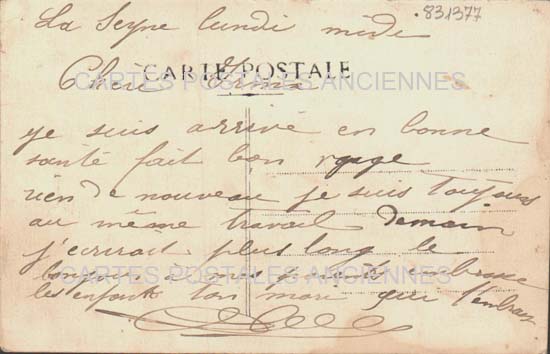 La Seyne lundi midi
.831377
CARTE POSTALE
Chère Irma
CARTES POSTALES ANCIENNES
je suis arrivé en bonne
santé fait bon
rien de nouveau je suis toujours
au même travail demain
j'ecrirait plus long le
bonjour embrasse
CARTES POSTALES ANCIENNES
les enfants ton mari qui t'embrasse